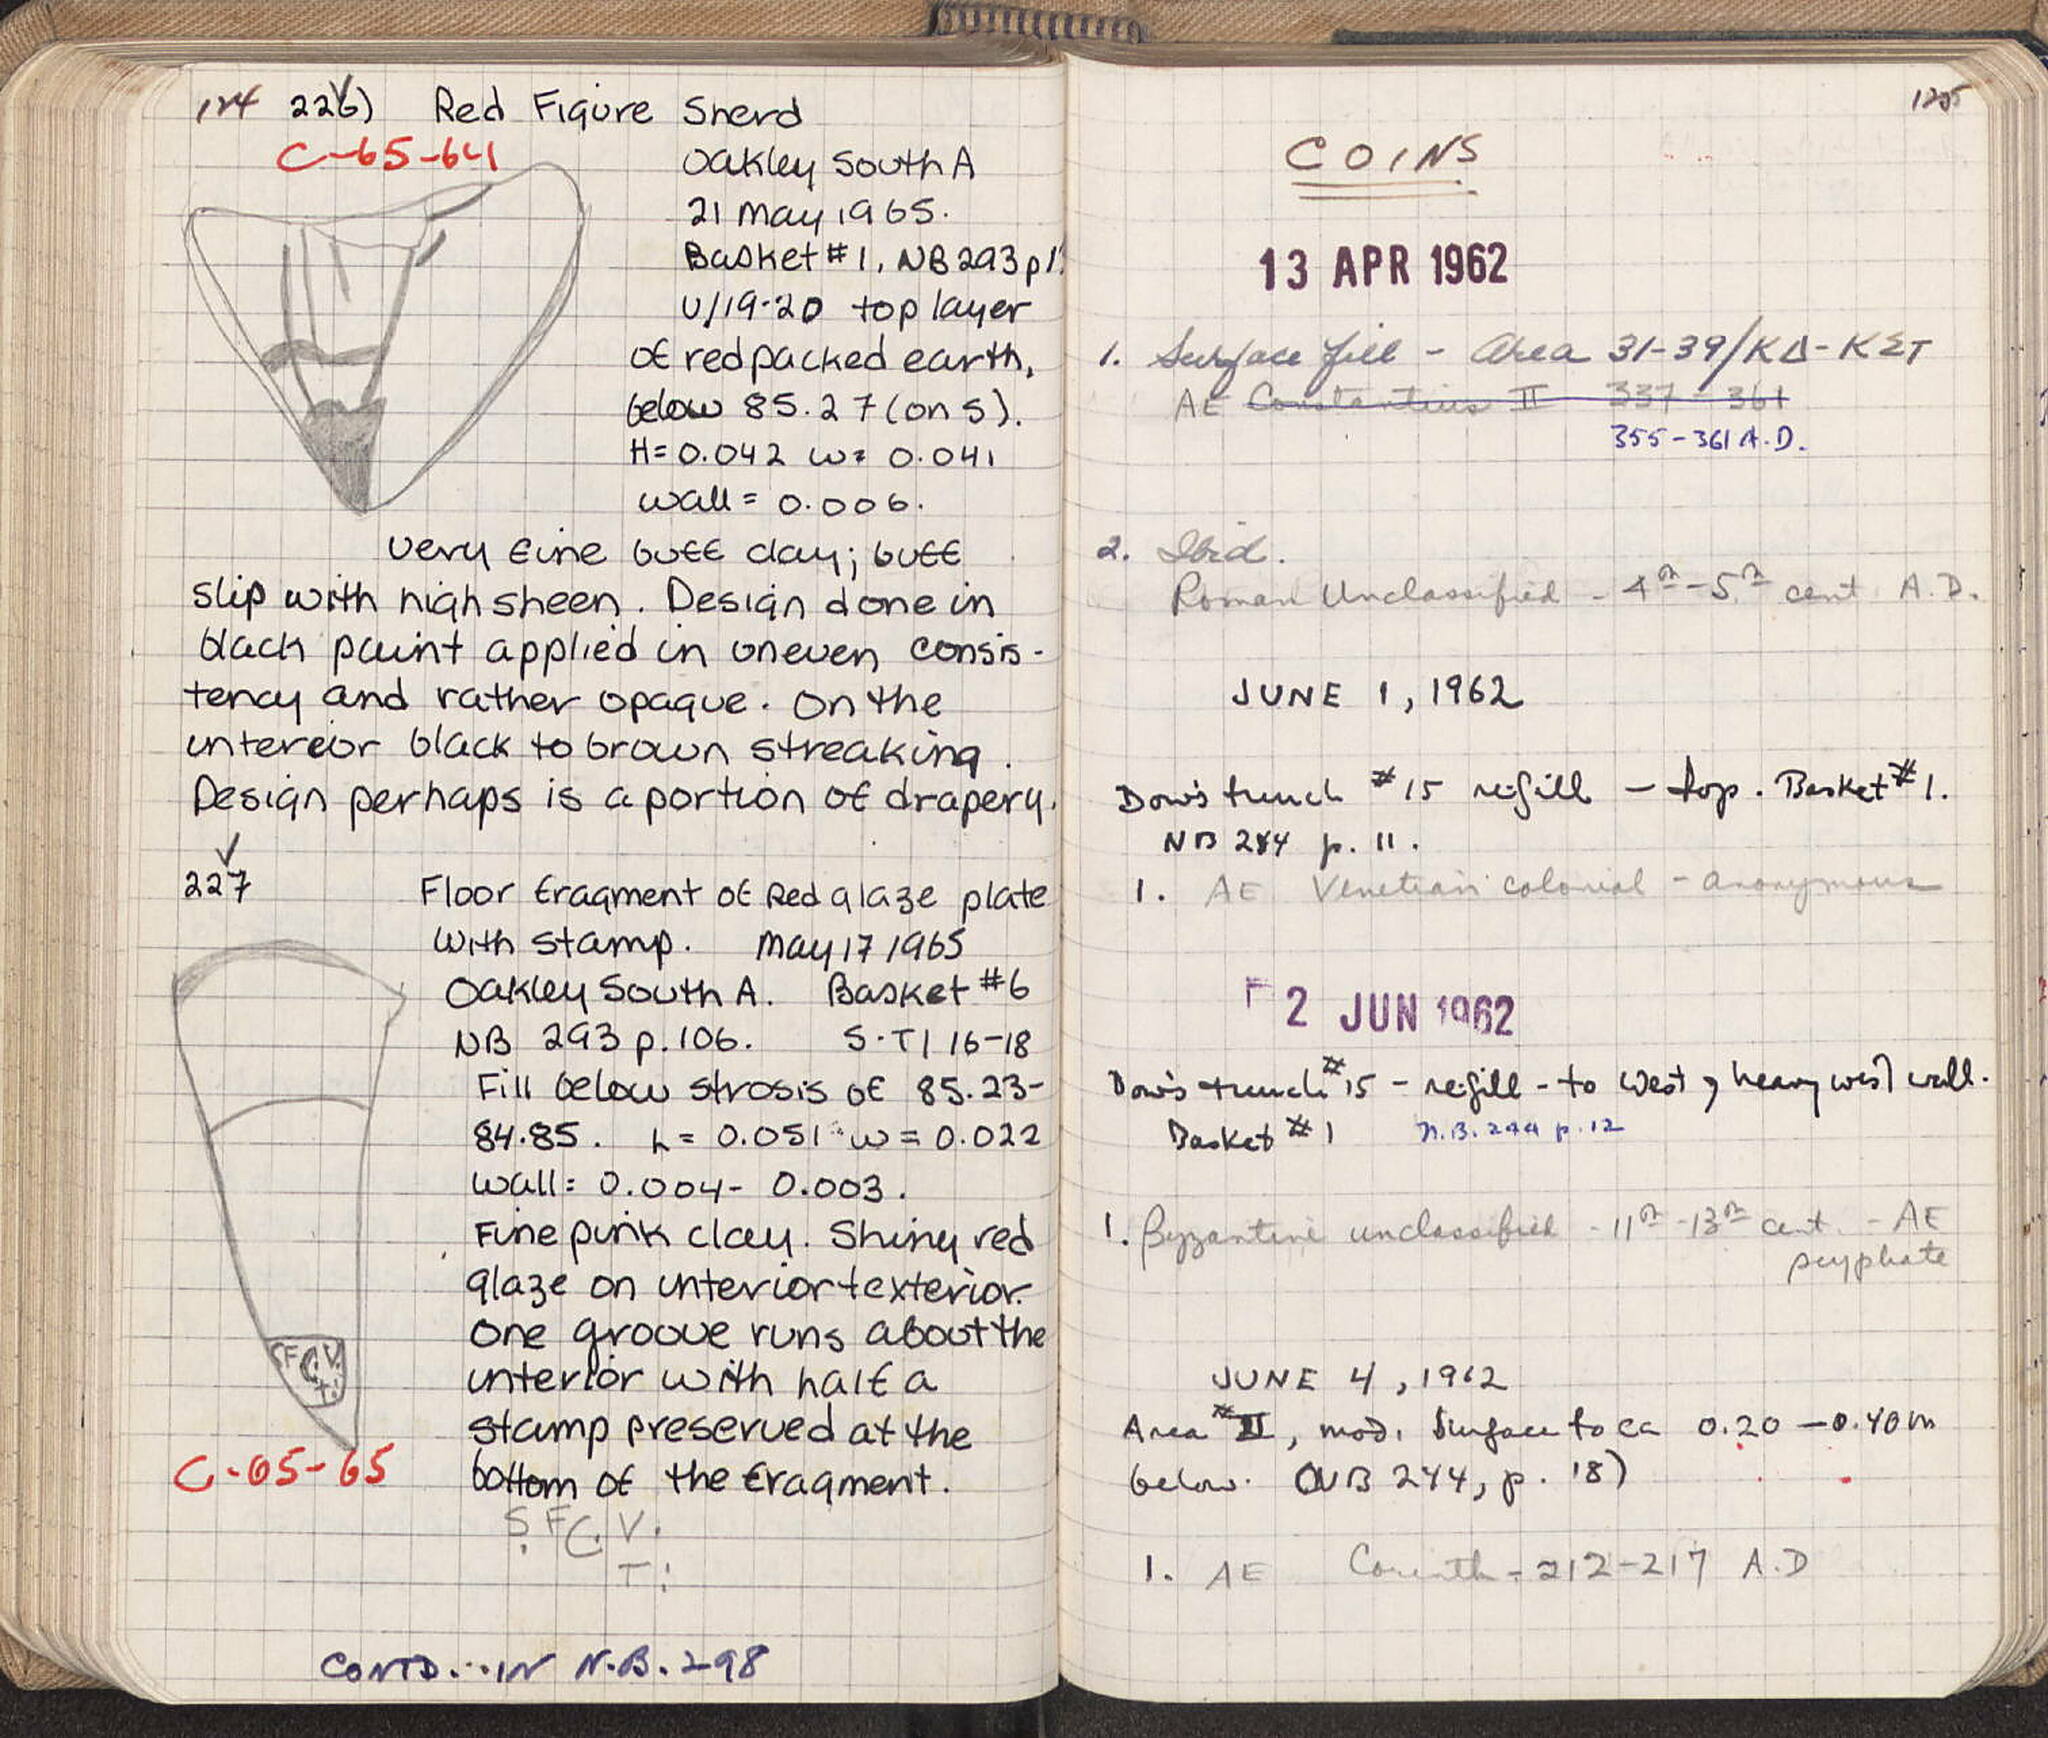 124 226) Red Figure Sherd
C-65-64
Oakley South A
21 May 1965.
Basket #1, NB 293 p 1
U/19-20 top layer
of red packed earth,
below 85.27 (on S).
H= 0.042 w= 0.041
wall= 0.006.
very fine buff clay; buff
slip with high sheen. Design done in
black paint applied in uneven consis-
tency and rather opaque. On the
interior black to brown streaking.
Design perhaps is a portion of drapery.
227 Floor fragment of Red glaze plate
with stamp. May 17 1965
Oakley South A. Basket #6
NB 293 p. 106. S-T/ 16-18
Fill below strosis of 85.23-
84.85. L= 0.051 w= 0.022
wall= 0.004- 0.003.
Fine pink clay. Shiny red
glaze on interior + exterior.
One groove runs about the
interior with half a
stamp preserved at the
bottom of the fragment.
S F C V
t:
C-65-65
S. F C. V.
T:
CONTD... IN N.B. 298
125
COINS
13 APR 1962
1. Surface fill - Area 31-39/KΔ-KΣT
AE Constantius II 337-361
355-361 A.D.
2. Ibid.
Roman Unclassified - 4th-5th cent A.D.
JUNE 1, 1962
Dow's trench #15 refill - top. Basket #1.
NB 244 p. 11.
1. AE Venetian colonial - anonymous
2 JUN 1962
Dow's trench #15 - refill - to West of heavy west wall.
Basket #1 N.B. 244 p. 12
1. Byzantine unclassified - 11th-13th cent. - AE
scyphate
JUNE 4, 1962
Area #II, mod. Surface to ca 0.20 - 0.40m
below. (NB 244, p. 18)
1. AE Corinth - 212-217 A.D